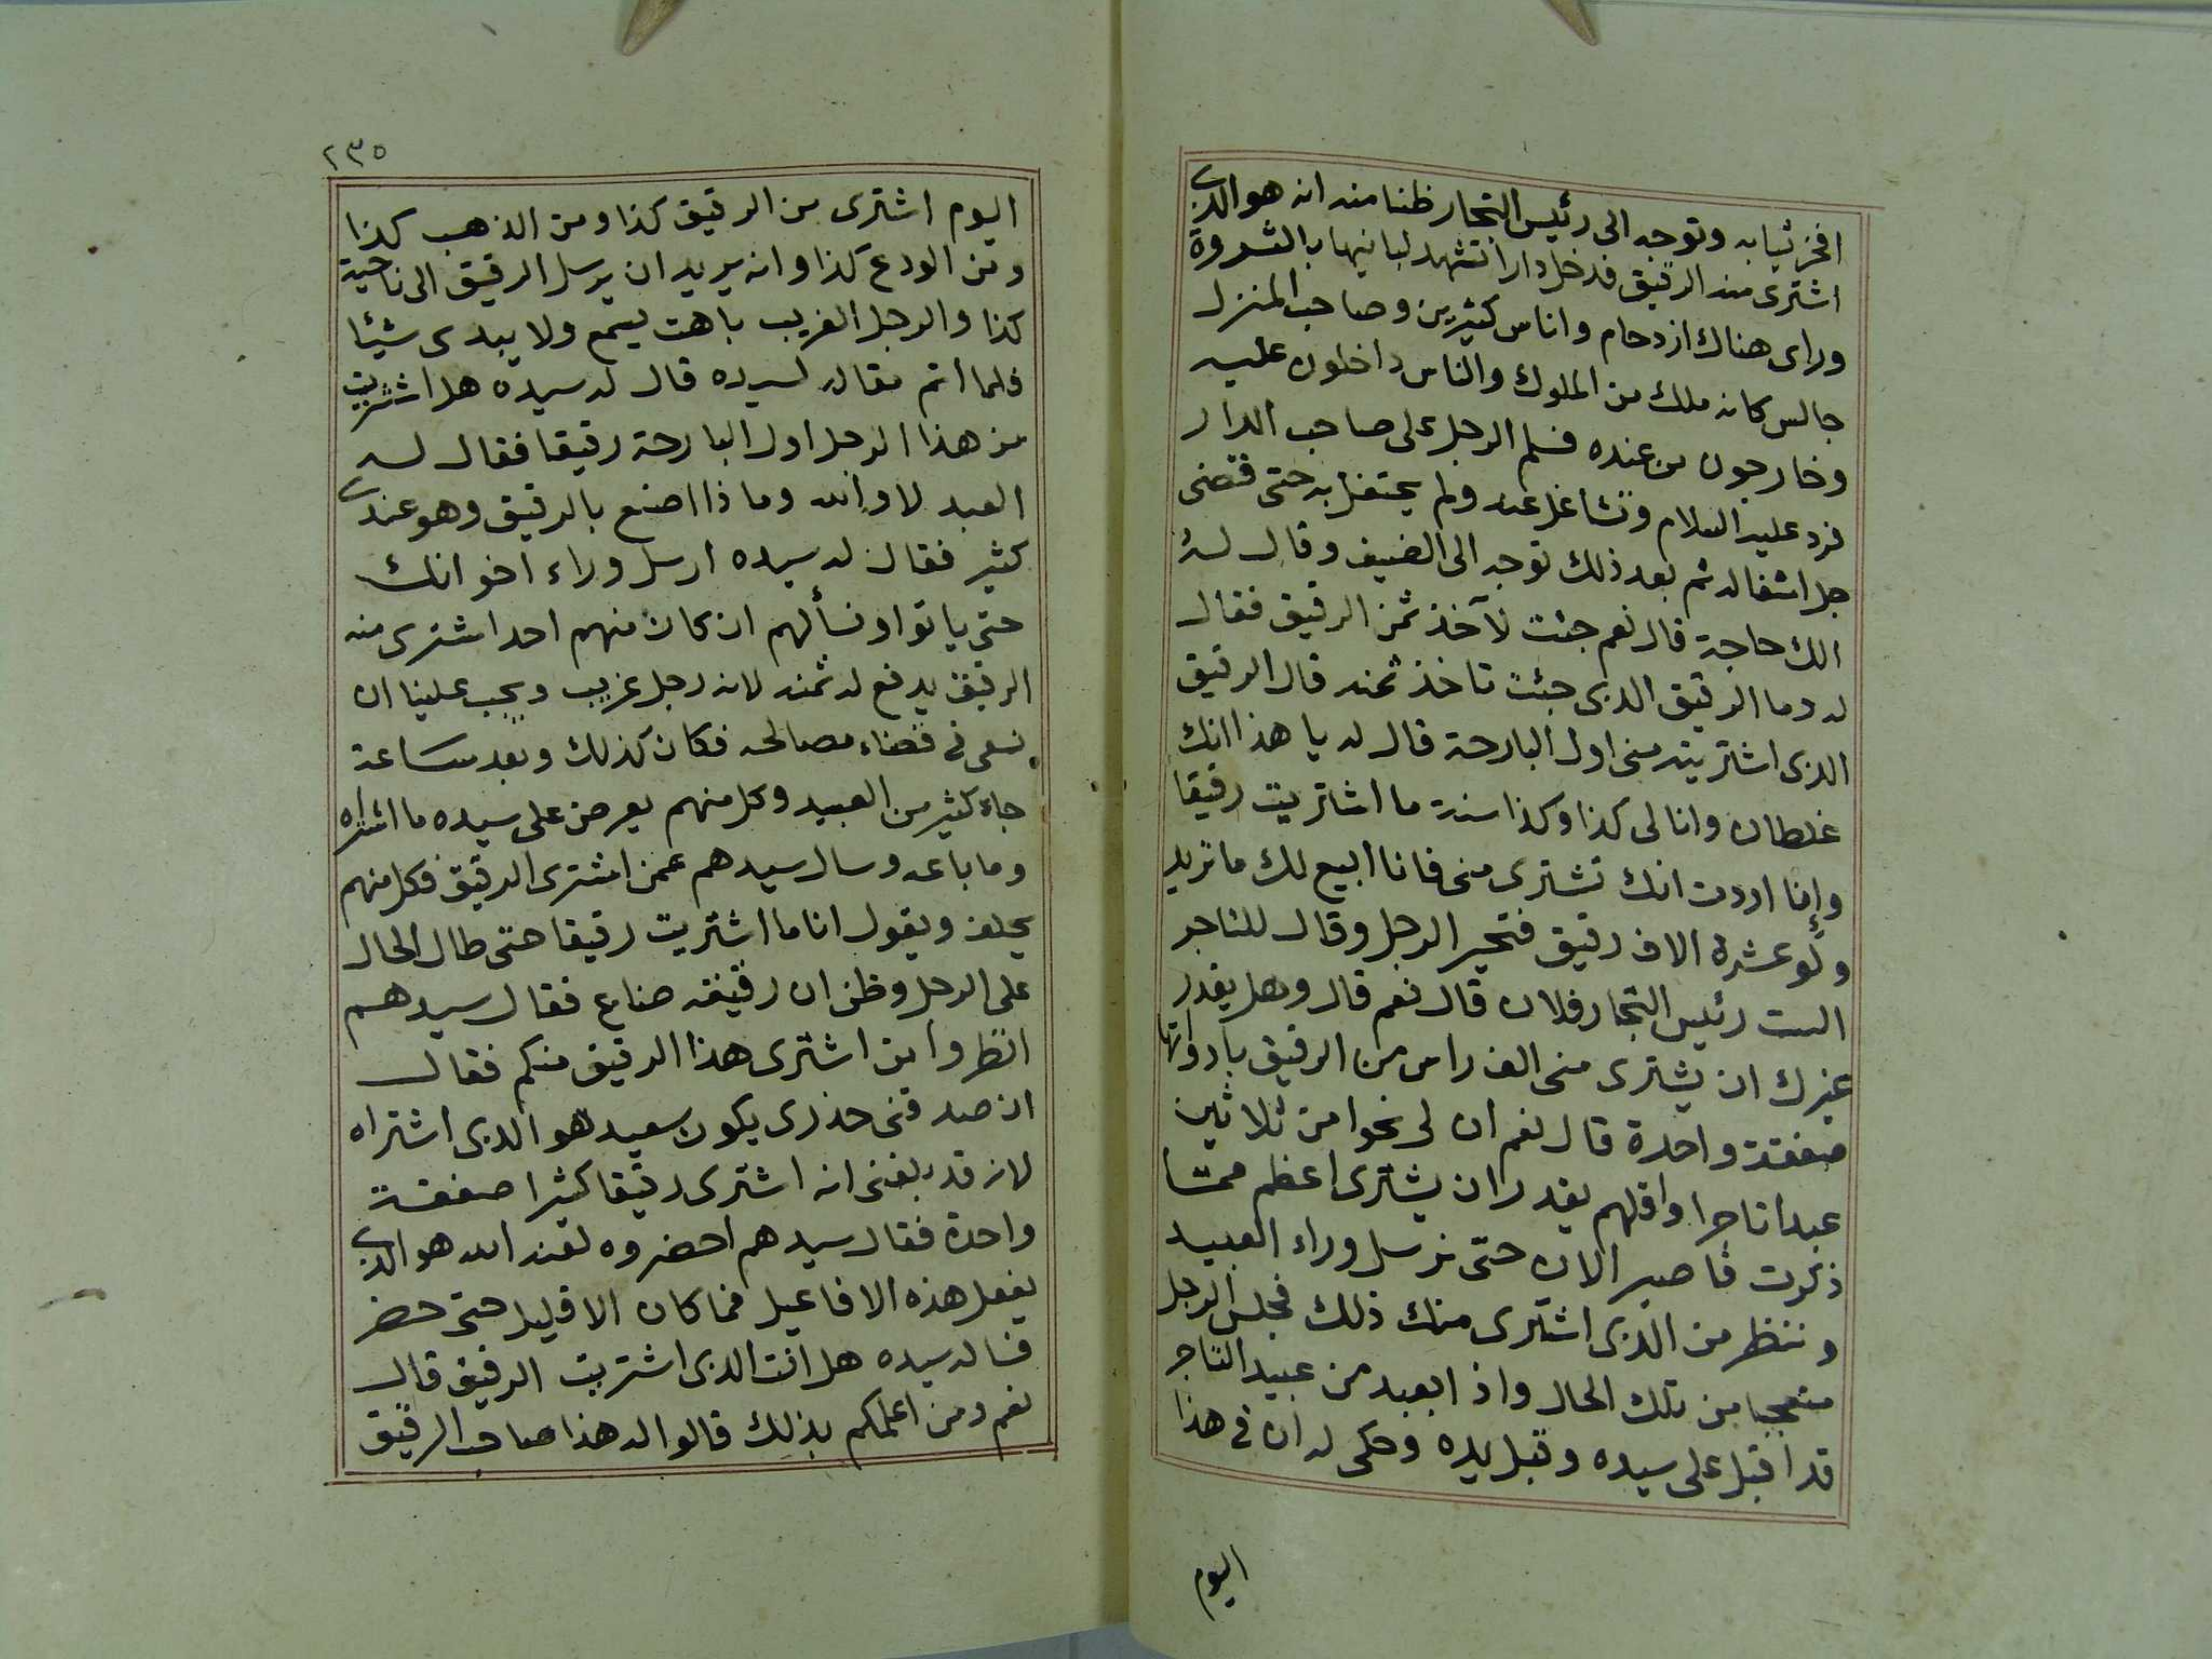 افخر ثيابه وتوجه الى رئيس التجار ظنا منه انه هو الذى
اشترى منه الرقيق فدخل دارا تشهد لبانيها بالثروة
وراى هناك ازدحام واناس كثيرين وصاحب المنزل
جالس كانه ملك من الملوك والناس داخلون عليه
وخارجون من عنده فسلم الرجل على صاحب الدار
فرد عليه السلام وتشاغل عنه ولم يحتفل به حتى قضى
جل اشغاله ثم بعد ذلك توجه الى الضيف وقال له
الك حاجة قال نعم جئت لآخذ ثمن الرقيق فقال
له وما الرقيق الذى جئت تاخذ ثمنه قال الرقيق
الذى اشتريته منى اول البارحة قال له يا هذا انك
غلطان وانا لى كذا وكذا سنة ما اشتريت رقيقا
وإنا اردت انك تشترى منى فانا ابيع لك ما تريد
ولو عشرة الاف رقيق فتحير الرجل وقال للتاجر
الست رئيس التجار فلان قال نعم قال وهل يقدر
غيرك ان يشترى منى الف راس من الرقيق بادواتها
صفقة واحدة قال نعم ان لى نحوا من ثلاثين
عبدا تاجرا واقلهم يقدر ان يشترى اعظم مما
ذكرت فاصبر الان حتى نرسل وراء العبيد
وننظر من الذى اشترى منك ذلك فجلس الرجل
متعجبا من تلك الحال واذا بعبد من عبيد التاجر
قد اقبل على سيده وقبل يده وحكى له ان فى هذا
اليوم
٢٣٥
اليوم اشترى من الرقيق كذا ومن الذهب كذا
ومن الودع كذا وانه يريد ان يرسل الرقيق الى ناحية
كذا والرجل الغريب باهت يسمع ولا يبدى شيئا
فلما اتم مقاله لسيده قال له سيده هل اشتريت
من هذا الرجل اول البارحة رقيقا فقال له
العبد لا والله وماذا اصنع بالرقيق وهو عندى
كثير فقال له سيده ارسل وراء اخوانك
حتى ياتوا ونسألهم ان كان منهم احد اشترى منه
الرقيق يدفع له ثمنه لانه رجل غريب ويجب علينا ان
نسعى فى قضاء مصالحه فكان كذلك وبعد ساعة
جاء كثير من العبيد وكل منهم يعرض على سيده ما اشتراه
وما باعه وسال سيدهم عمن اشترى الرقيق فكل منهم
يحلف ويقول انا ما اشتريت رقيقا حتى طال الحال
على الرجل وظن ان رقيقه ضاع فقال سيدهم
انظروا من اشترى هذا الرقيق منكم فقال
ان صدقنى حذرى يكون سعيد هو الذى اشتراه
لانه قد بلغنى انه اشترى رقيقا كثيرا صفقة
واحدة فقال سيدهم احضروه لعنه الله هو الذى
يفعل هذه الافاعيل فما كان الا قليل حتى حضر
فساله سيده هل انت الذى اشتريت الرقيق قال
نعم ومن اعلمكم بذلك قالوا له هذا صاحب الرقيق